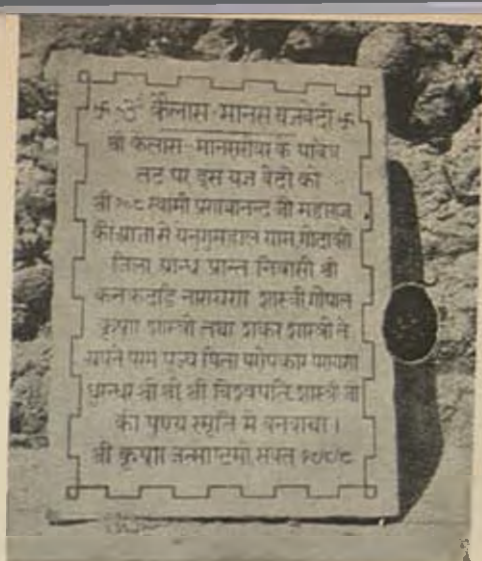 卐 ॐ कैलास-मानस यज्ञवेदी 卐
श्री कैलास-मानसरोवर के पवित्र
तट पर इस यज्ञ वेदी को
श्री १०८ स्वामी प्रणवानन्द जी महाराज
की आज्ञा से ग्राम, गोदावरी
जिला आन्ध्र प्रान्त निवासी श्री
नारायण शास्त्री, गोपाल
कृष्ण शास्त्री तथा शंकर शास्त्री ने
अपने परम पूज्य पिता परोपकार परायण
धुरन्धर श्री श्री श्री विश्वपति शास्त्री जी
की पुण्य स्मृति में बनवाया।
श्री कृष्ण जन्माष्टमी, संवत्